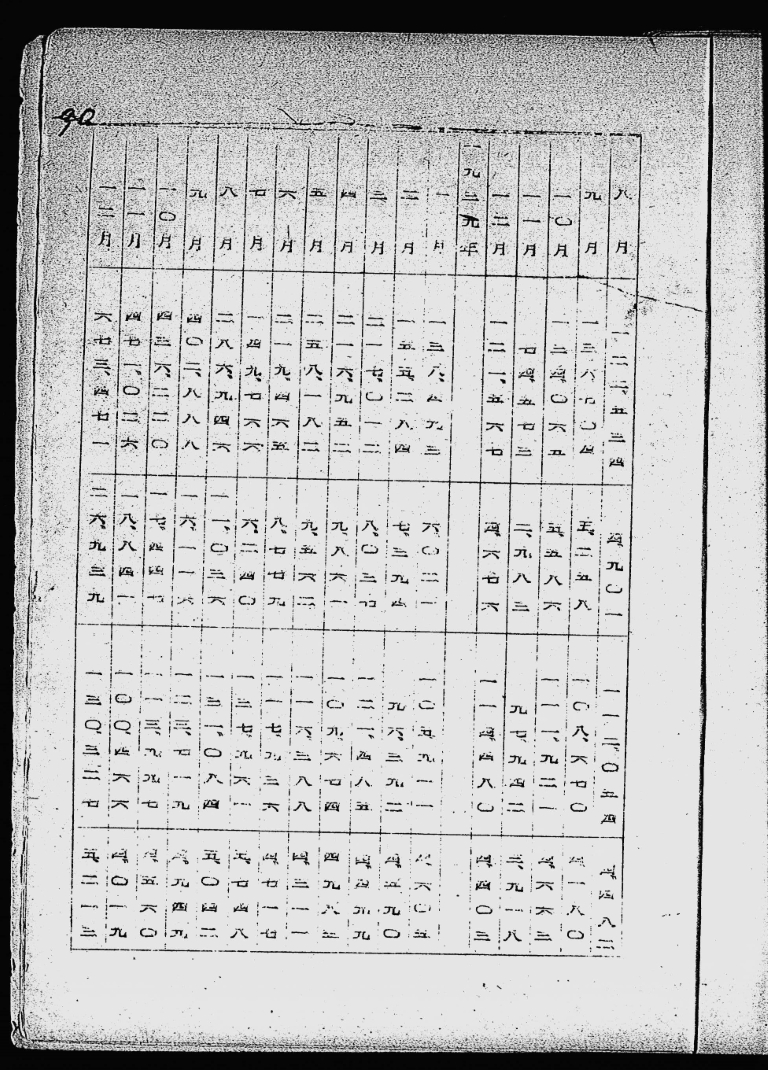 90
八月 一二二、五三四 四、九〇一 一一二、〇五四 四、四八二
九月 一三六、七〇四 五、二五八 一〇八、六七〇 四、一八〇
一〇月 一三四、〇六五 五、五八六 一一一、九二一 四、六六三
一一月 七四、五七三 二、九八三 九七、九四二 三、九一八
一二月 一二一、五六七 四、六七六 一一四、四八〇 四、四〇三
一九二九年
一月 一三八、四九三 六、〇二一 一〇五、九一一 四、六〇五
二月 一五五、二八四 七、三九四 九六、三九二 四、五九〇
三月 二一七、〇一二 八、〇三七 一二一、四八五
四月 二一六、九五二 九、八六一 一〇九、六七四
五月 二五八、一八二 九、五六二 一一六、三八八 四、三一一
六月 二一九、四六五 八、七七九 一一七、九三六 四、七一七
七月 一四九、七六六 六、二四〇 一三七、九六一 五、七四八
八月 二八六、九四六 一一、〇三六 一三一、〇八四 五、〇四二
九月 四〇二、八八八 一六、一一六 一二三、七一九
一〇月 四三六、二二〇 一七、四四七 一一三、九九七
一一月 四七一、〇二六 一八、八四一 一〇〇、四六六 四、〇一九
一二月 六七三、四七一 二六、九三九 一三〇、三二七 五、二一三